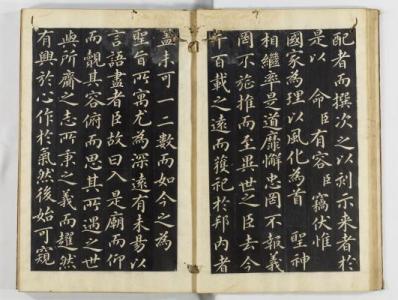 配者而撰次之以刻示来者於
是以 命臣有容臣竊伏惟
國家為理以風化為首 聖神
相繼率是道靡懈忠罔不報義
罔不旌推而至異世之臣去今
千百載之遠而獲祀於邦內者
蓋未可一二數而如今之為
聖旨所寓尤為深遠有未易以
言語盡者臣故曰入是廟而仰
而覿其容俯而思其所遇之世
與所齎之志所秉之義而躍然
有興於心作於氣然後始可窺